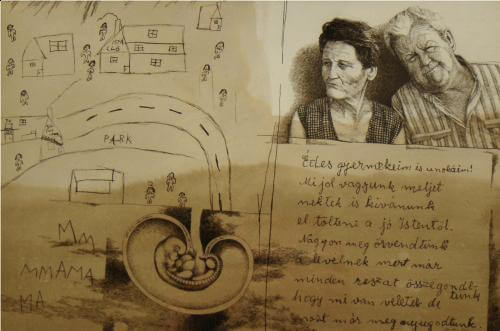 CLG
PARK
MM
MMAMA
MA
Édes gyermekeim is unokáim!
Mi jól vagyunk meljet
nektek is kívánunk
el tölteni a jó Istentől.
Nagyon meg örvendtünk
a levelnek mert már
minden roszat összegondl-
tunk
hogy mi van véletek de
most már megnyugodtunk.